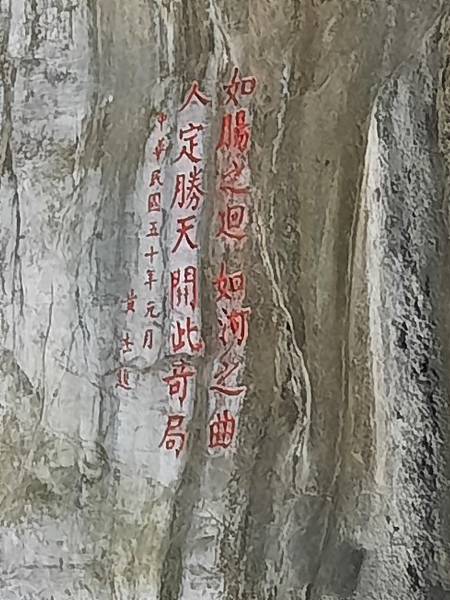 如腸之迴 如河之曲
人定勝天開此奇局
中華民國五十年元月
黃